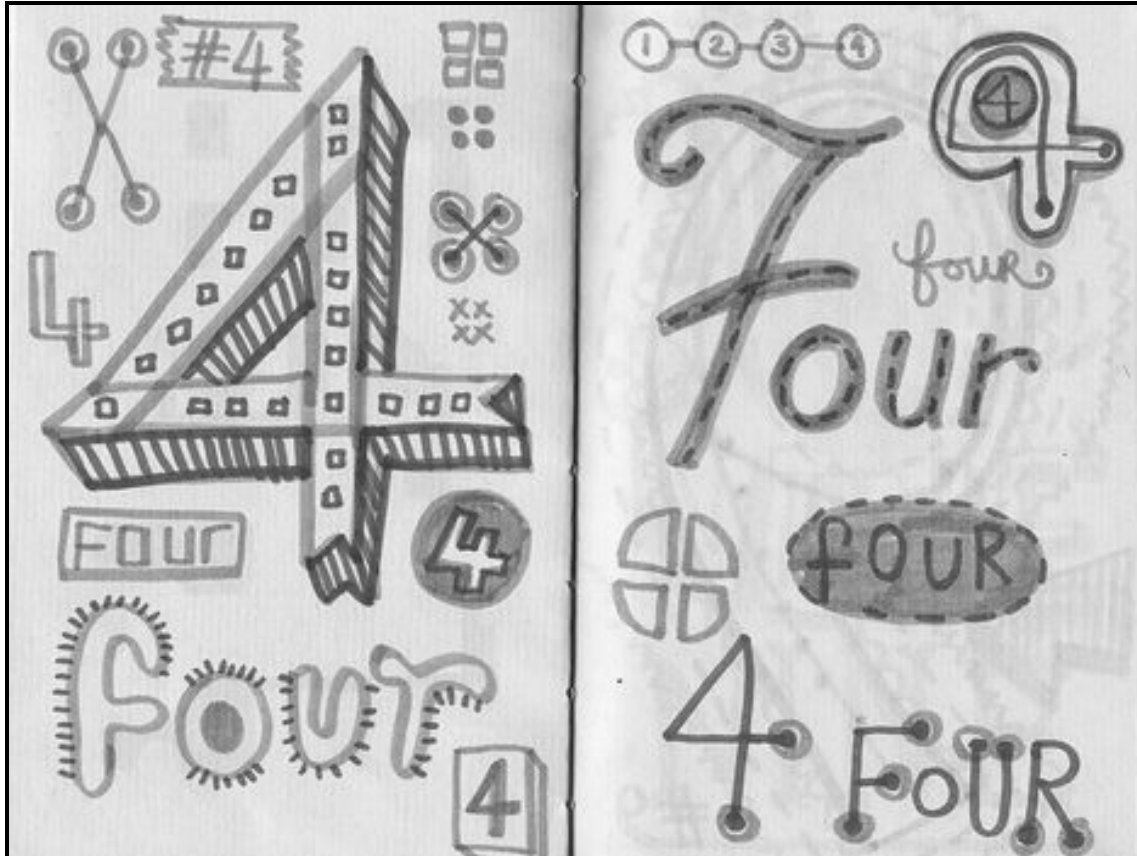 #4
4
4
FOUR
4
four
4
1 2 3 4
4
4
four
Four
fOUR
4 FOUR